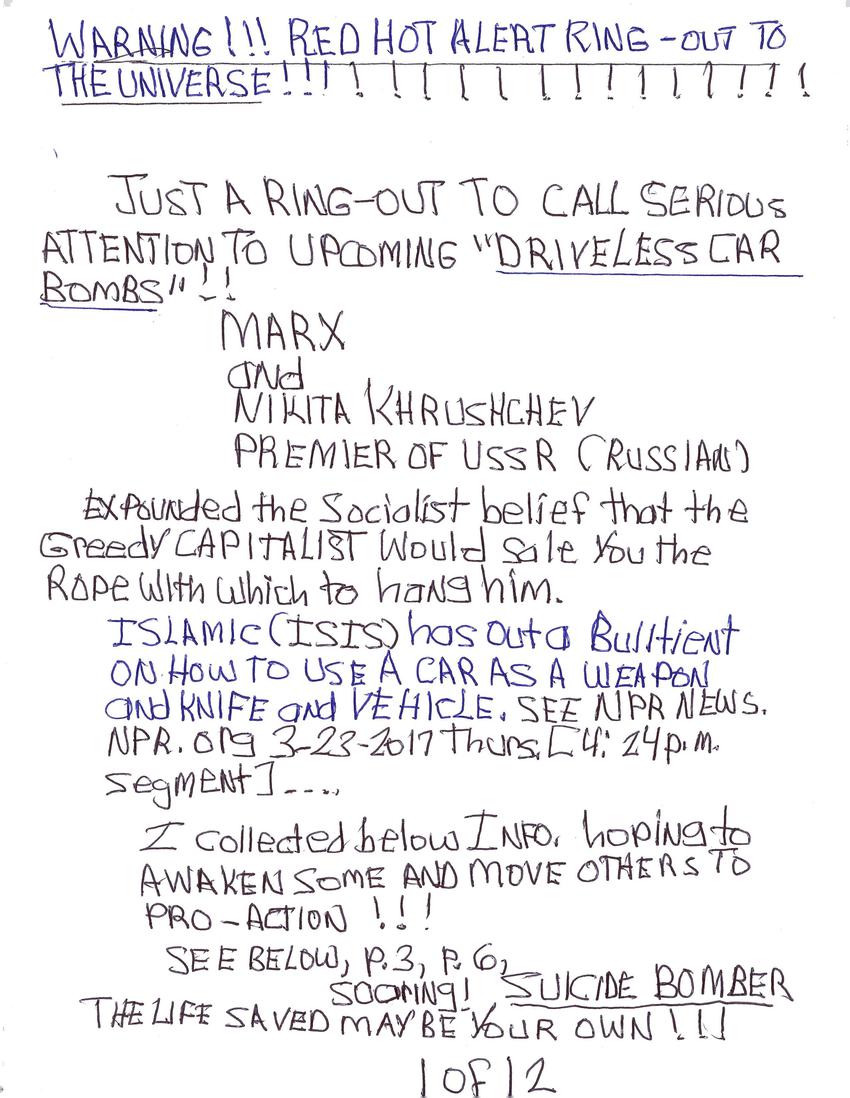 WARNING!!! RED HOT ALERT RING-OUT TO
THE UNIVERSE!!!!!!!!!!!!!!!!!
JUST A RING-OUT TO CALL SERIOUS
ATTENTION TO UPCOMING "DRIVELESS CAR
BOMBS"!!
MARX
and
NIKITA KHRUSHCHEV
PREMIER OF USSR (RUSSIAN)
EXPOUNDed the Socialist belief that the
Greedy CAPITALIST Would Sale You the
Rope With which to hang him.
ISLAMIC (ISIS) has out a Bulltient
ON HOW TO USE A CAR AS A WEAPON
and KNIFE and VEHICLE. SEE NPR NEWS.
NPR.org 3-23-2017 Thurs. [4:24 p.m.
segment]....
I collected below INFO. hoping to
AWAKEN SOME AND MOVE OTHERS TO
PRO-ACTION !!!
SEE BELOW, p.3, p.6,
SOOMING! SUICIDE BOMBER
THE LIFE SAVED MAY BE YOUR OWN!!!
1 OF 12